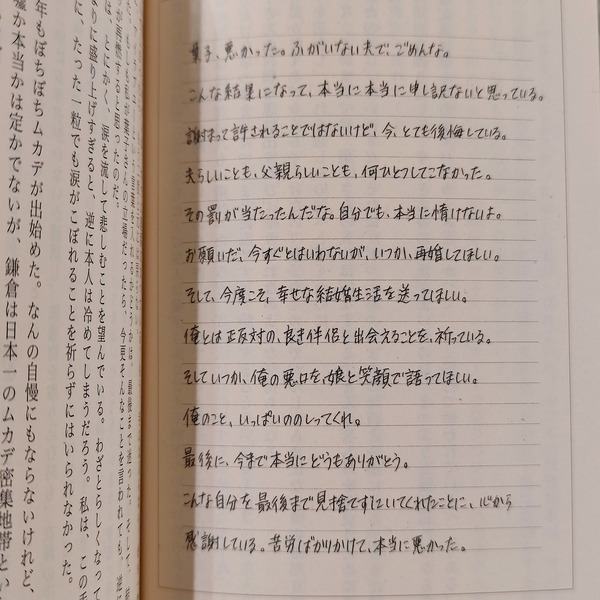 葉子、悪かった。ふがいない夫で、ごめんな。
こんな結果になって、本当に本当に申し訳ないと思っている。
謝って許されることではないけど、今、とても後悔している。
夫らしいことも、父親らしいことも、何ひとつしてこなかった。
その罰が当たったんだな。自分でも、本当に情けないよ。
お願いだ、今すぐとはいわないが、いつか、再婚してほしい。
そして、今度こそ、幸せな結婚生活を送ってほしい。
俺とは正反対の、良き伴侶と出会えることを、祈っている。
そしていつか、俺の悪口を、娘と笑顔で語ってほしい。
俺のこと、いっぱいののしってくれ。
最後に、今まで本当にどうもありがとう。
こんな自分を最後まで見捨てずにいてくれたことに、心から
感謝している。苦労ばかりかけて、本当に悪かった。
かどうかは、最後まで迷った。そして、
私が葉子さんの立場だったら、今更そんなことを言われても、逆に
が再燃すると思ったのだ。
は、とにかく、涙を流して悲しむことを望んでいる。わざとらしくなって
りに盛り上げすぎると、逆に本人は冷めてしまうだろう。私は、この手
に、たった一粒でも涙がこぼれることを祈らずにはいられなかった。
年もぼちぼちムカデが出始めた。なんの自慢にもならないけれど、
嘘か本当かは定かでないが、鎌倉は日本一のムカデ密集地帯とい